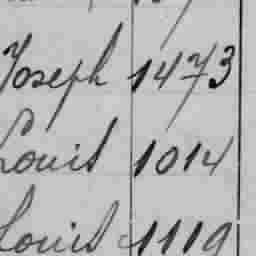 Joseph 1473
Louis 1014
Louis 1119